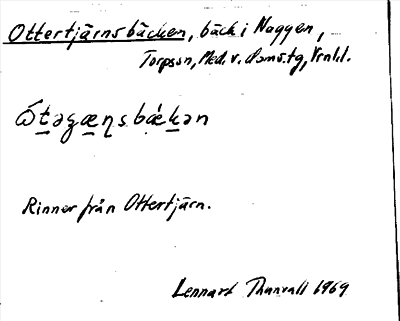 Ottertjärnsbäcken, bäck i Naggen,
Torpson, Med. v. doms.tg, Vrnld.
Rinner från Ottertjärn.
Lennart Thunvall 1969